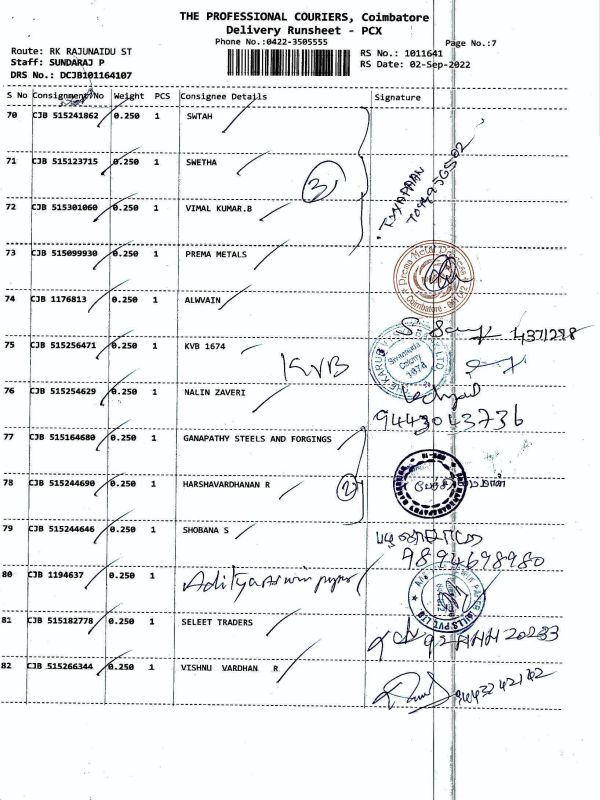 THE PROFESSIONAL COURIERS, Coimbatore
Delivery Runsheet - PCX
Phone No.:0422-3505555
Page No.:7
Route: RK RAJUNAIDU ST
RS No.: 1011641
Staff: SUNDARAJ P
RS Date: 02-Sep-2022
DRS No.: DCJB101164107
S No Consignment No Weight PCS Consignee Details Signature
70 CJB 515241862 0.250 1 SWTAH
71 CJB 515123715 0.250 1 SWETHA
3
72 CJB 515301060 0.250 1 VIMAL KUMAR.B
73 CJB 515099930 0.250 1 PREMA METALS
Prema Metal
Coimbatore
74 CJB 1176813 0.250 1 ALWVAIN
4371298
75 CJB 515256471 0.250 1 KVB 1674
KVB
Colony
1674
76 CJB 515254629 0.250 1 NALIN ZAVERI
9443043736
77 CJB 515164680 0.250 1 GANAPATHY STEELS AND FORGINGS
78 CJB 515244690 0.250 1 HARSHAVARDHANAN R
2
79 CJB 515244646 0.250 1 SHOBANA S
9894698980
80 CJB 1194637 0.250 1 Aditya
MILLS PVT LTD
81 CJB 515182778 0.250 1 SELEET TRADERS
82 CJB 515266344 0.250 1 VISHNU VARDHAN R